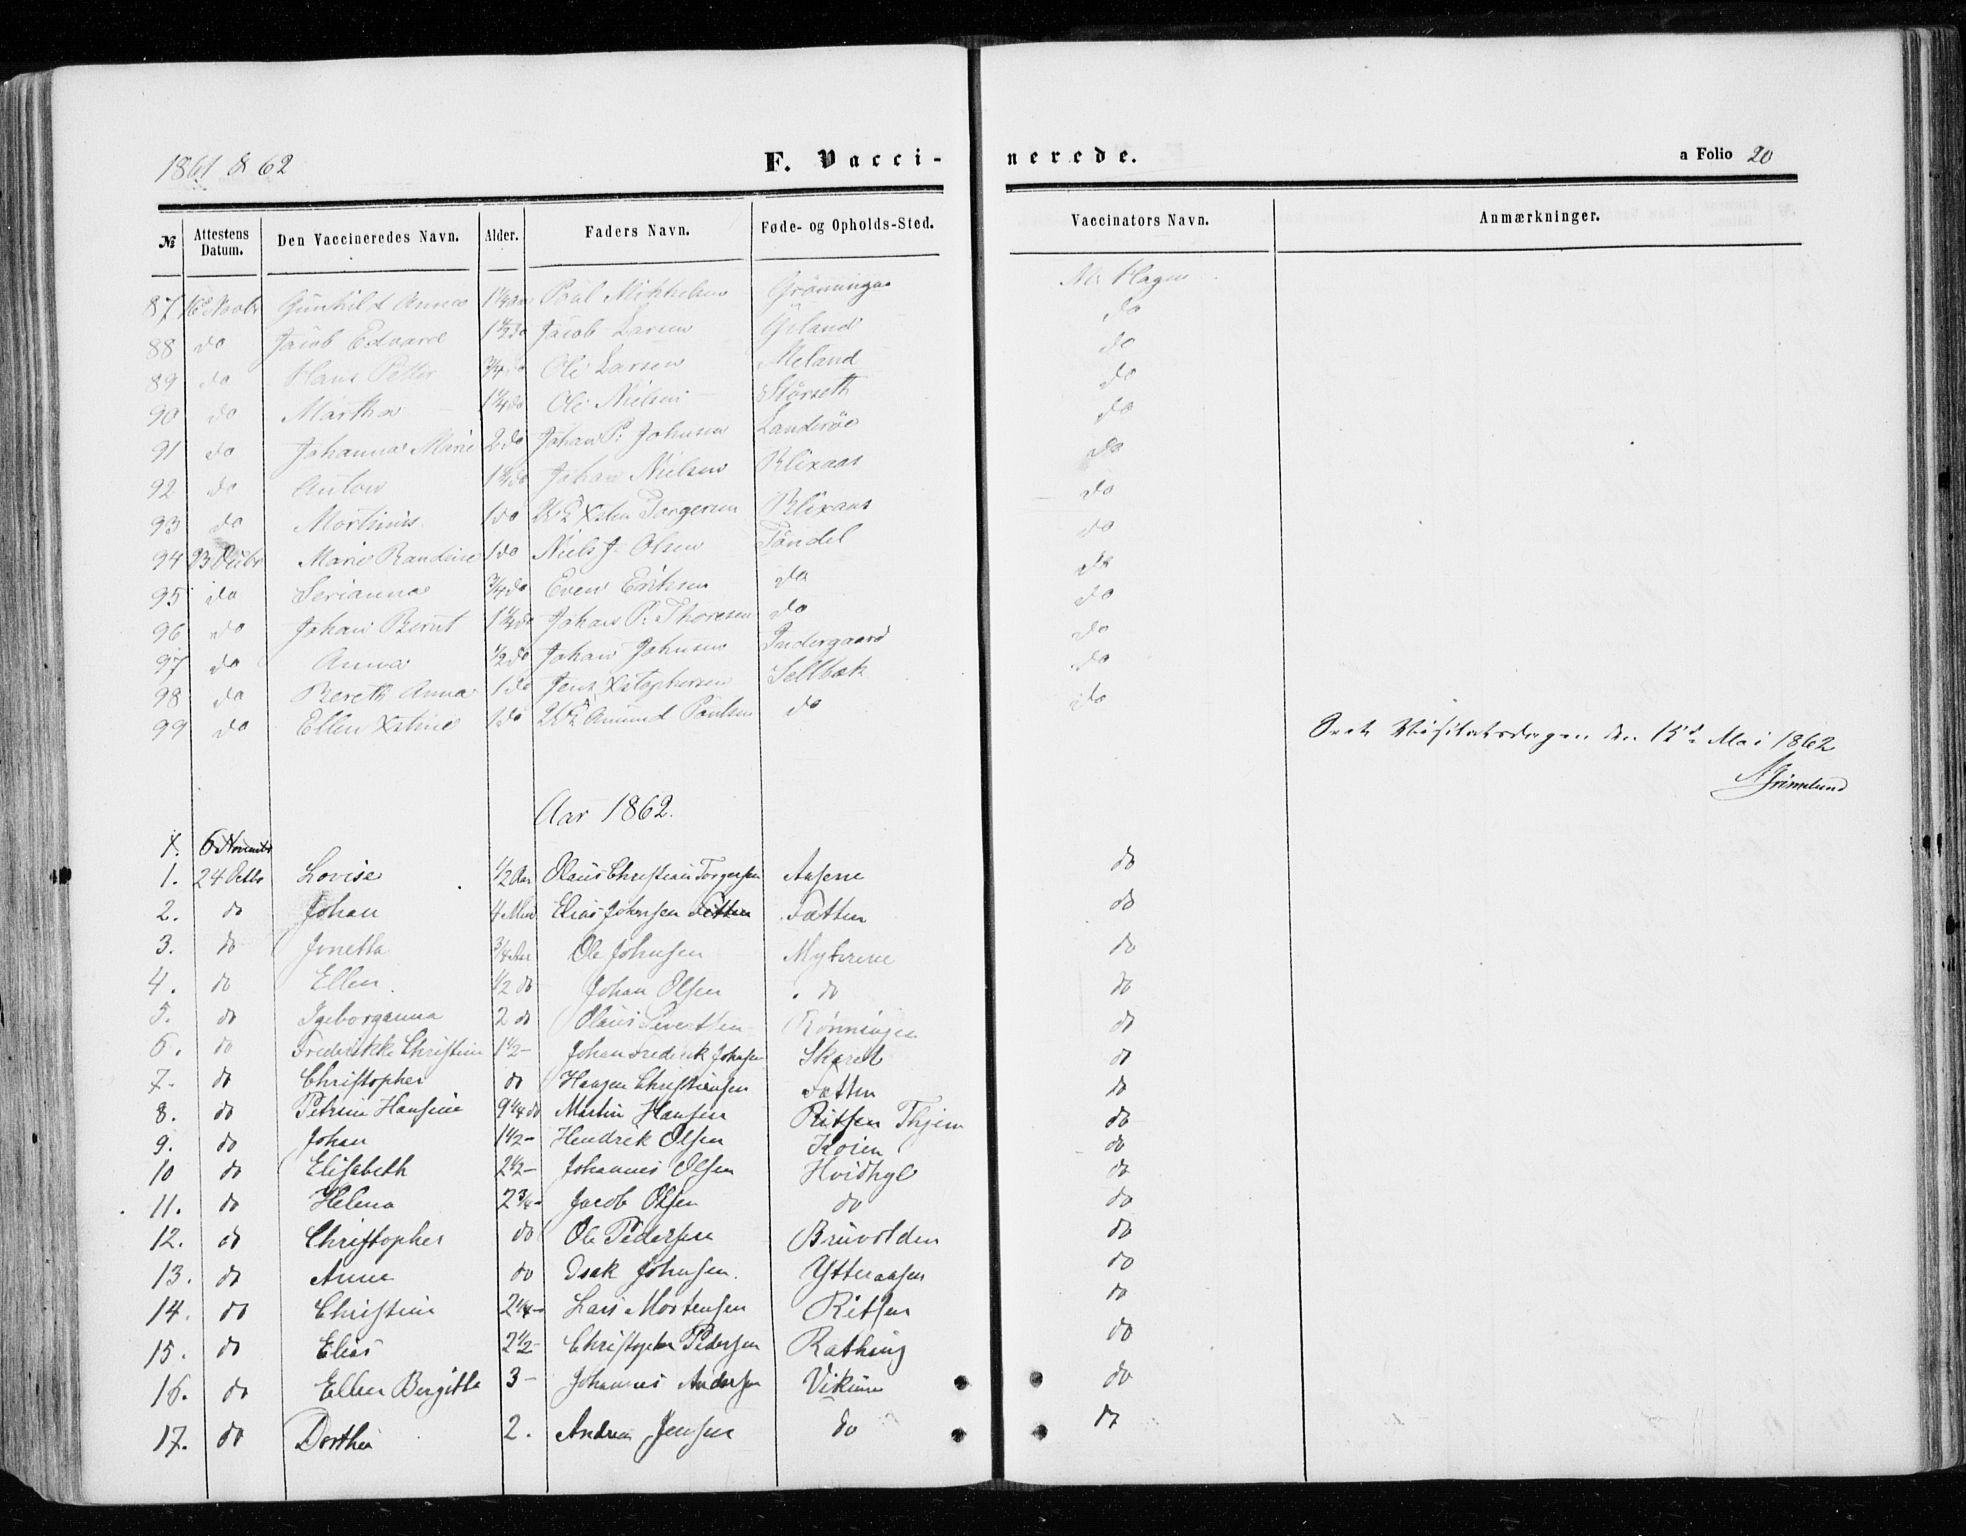 1861 & 62 F. Vacci- nerede. a Folio 20
№ Attestens Datum. Den Vaccineredes Navn. Alder. Faders Navn. Føde- og Opholds-Sted. Vaccinators Navn. Anmærkninger.
87 16de Novbr Gunhild Anna 1¼ Aar Poul Mikkelsen Grönningen N: Hagen
88 do Jacob Edvard 1½ do Jacob Larsen do
89 do Hans Petter ¾ do Ole Larsen Meland do
90 do Martha 1¼ do Ole Nielsen Störseth do
91 do Johanna Marie 2 do Johan P: Johnsen Landröe do
92 do Anton 1¼ do Johan Nielsen Blixaas do
93 do Mortinus 1 do Xsten Torgersen Blixaas do
94 23 Decbr Marie Randine 1 do Niels J. Olsen Töndel do
95 do Serianna ¾ do Even Eriksen do do
96 do Johan Bernt 1¼ do Johan P: Thoresen do do
97 do Anna ½ do Johan Johnsen Indergaard do
98 do Bereth Anna 1 do Jens Xstophersen Selbæk do
99 do Ellen Xstine 1 do Amund Poulsen do do
Visitatsdagen den 15de Mai 1862
Grimelund
Aar 1862.
1. 6 November
1. 24 Octbr Lovise ½ Aar Olaus Christian Torgersen Aasene do
2. do Johan 4 Mnd Elias Johnsen Fætten Fætten do
3. do Jonetta ¾ Aar Ole Johnsen Myhrene do
4. do Ellen ½ do Johan Olsen do do
5. do Igeborganna 2 do Olaus Sivertsen Rønningen do
6. do Frederikke Christine 1½ - Johan Frederik Johnsen Skaret do
7. do Christopher do Hansen Christiansen Fætten do
8. do Petrine Hansine 9¼ do Martin Hansen Ritsen Thjem do
9. do Johan 1½ - Hendrik Olsen Koien do
10 do Elisabeth 2½ - Johannes Olsen Hvidhyl do
11. do Helena 2¾ - Jacob Olsen do do
12. do Christopher do Ole Pedersen Bruvolden do
13. do Anne do Isak Johnsen. Ytteraasen do
14. do Christine 2¼ - Lars Mortensen Ritsen do
15. do Elias 2½ - Christopher Pedersen Rathsvig do
16. do Ellen Bergitte 3 - Johannes Andersen Vikum do
17. do Dorthea 2. Andreas Jensen do do